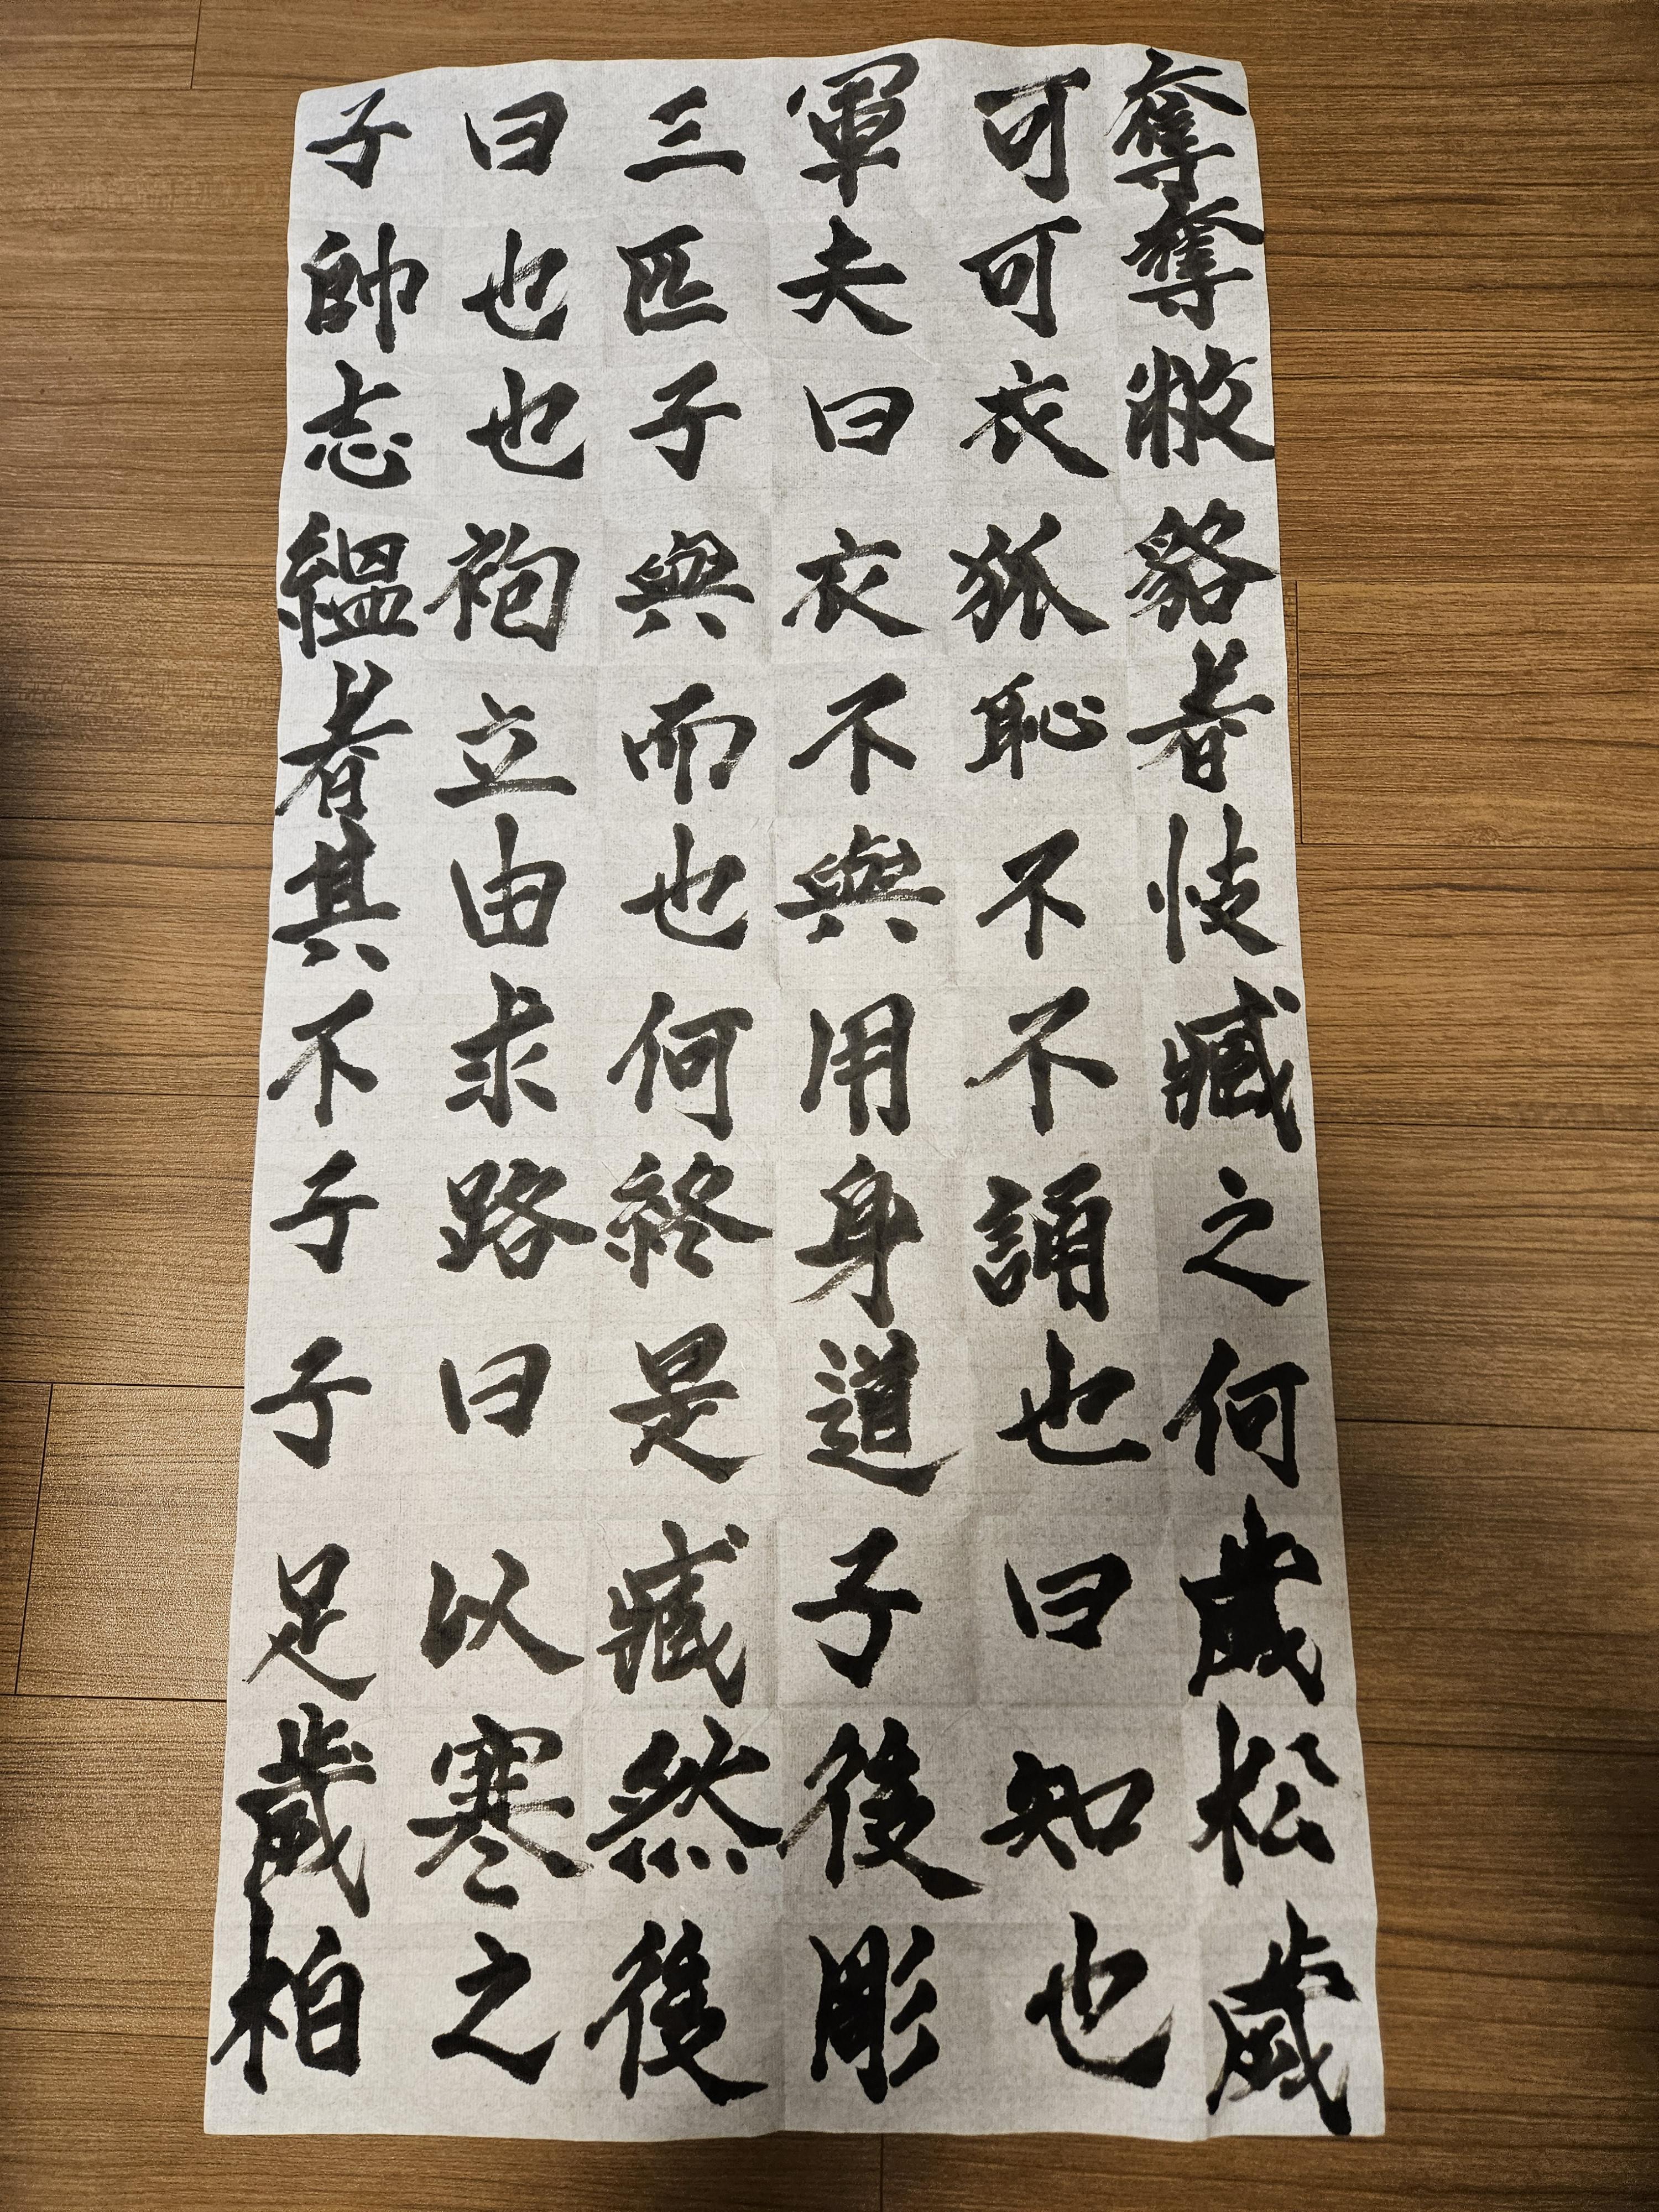 子曰三軍可奪
帥也匹夫可奪
志也子曰衣敝
縕袍與衣狐貉
者立而不恥者
其由也與不忮
不求何用不臧
子路終身誦之
子曰是道也何
足以臧子曰歲
歲寒然後知松
柏之後彫也歲